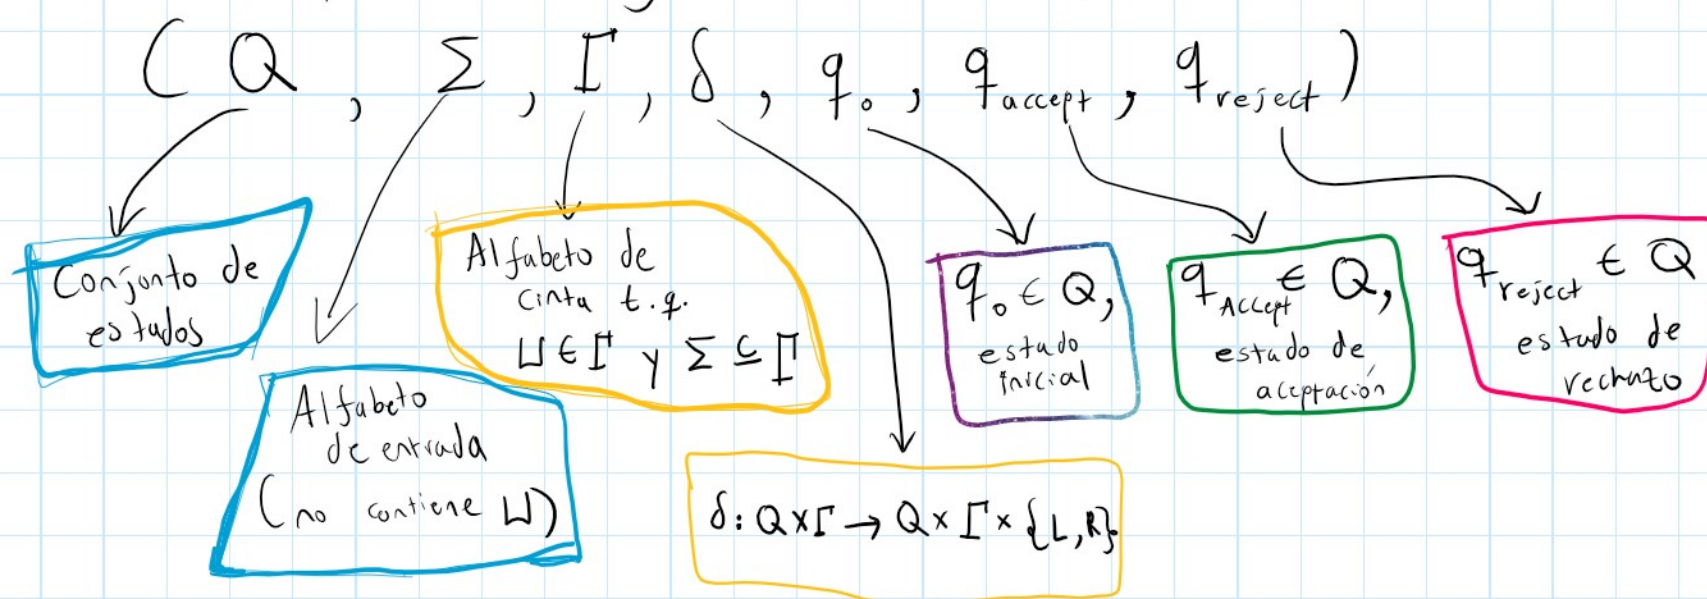 ( Q , Σ , Γ , δ , q₀ , q_accept , q_reject )
Conjunto de
estados
Alfabeto
de entrada
(no contiene ⊔)
Alfabeto de
cinta t.q.
⊔ ∈ Γ y Σ ⊆ Γ
δ: Q×Γ → Q×Γ×{L,R}
q₀ ∈ Q,
estado
inicial
q_Accept ∈ Q,
estado de
aceptación
q_reject ∈ Q
estado de
rechazo